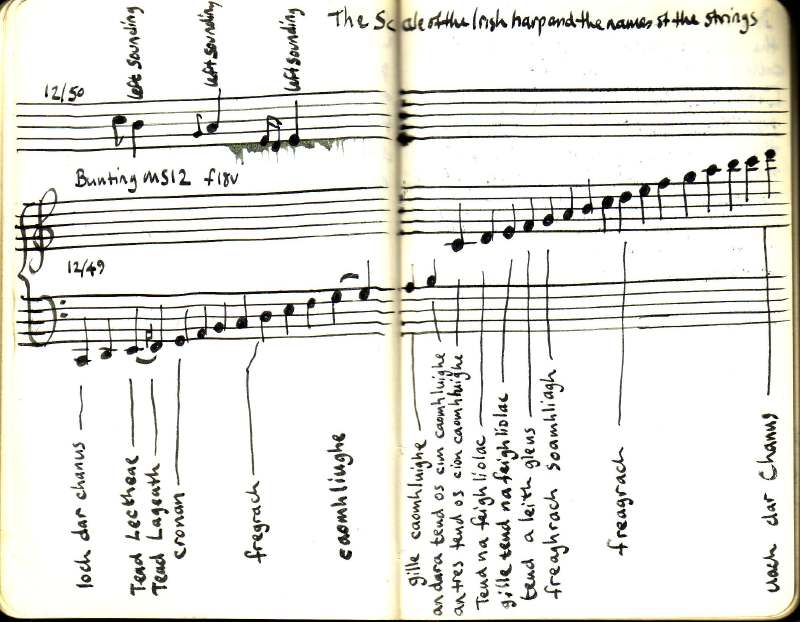 The Scale of the Irish harp and the names of the strings
left sounding
left sounding
left sounding
12/50
Bunting MS12 f18v
12/49
loch dar chanus
Tead Lecthene
Tead Lageath
cronan
fregrach
caomhliughe
gille caomhluighe
an dara tend os cin caomhluighe
an tres tend os cion caomhluighe
Tend na feighliolac
gille tend na feighliolac
tend a leith gleus
freaghrach soamhliagh
freagrach
uach dar Chanus